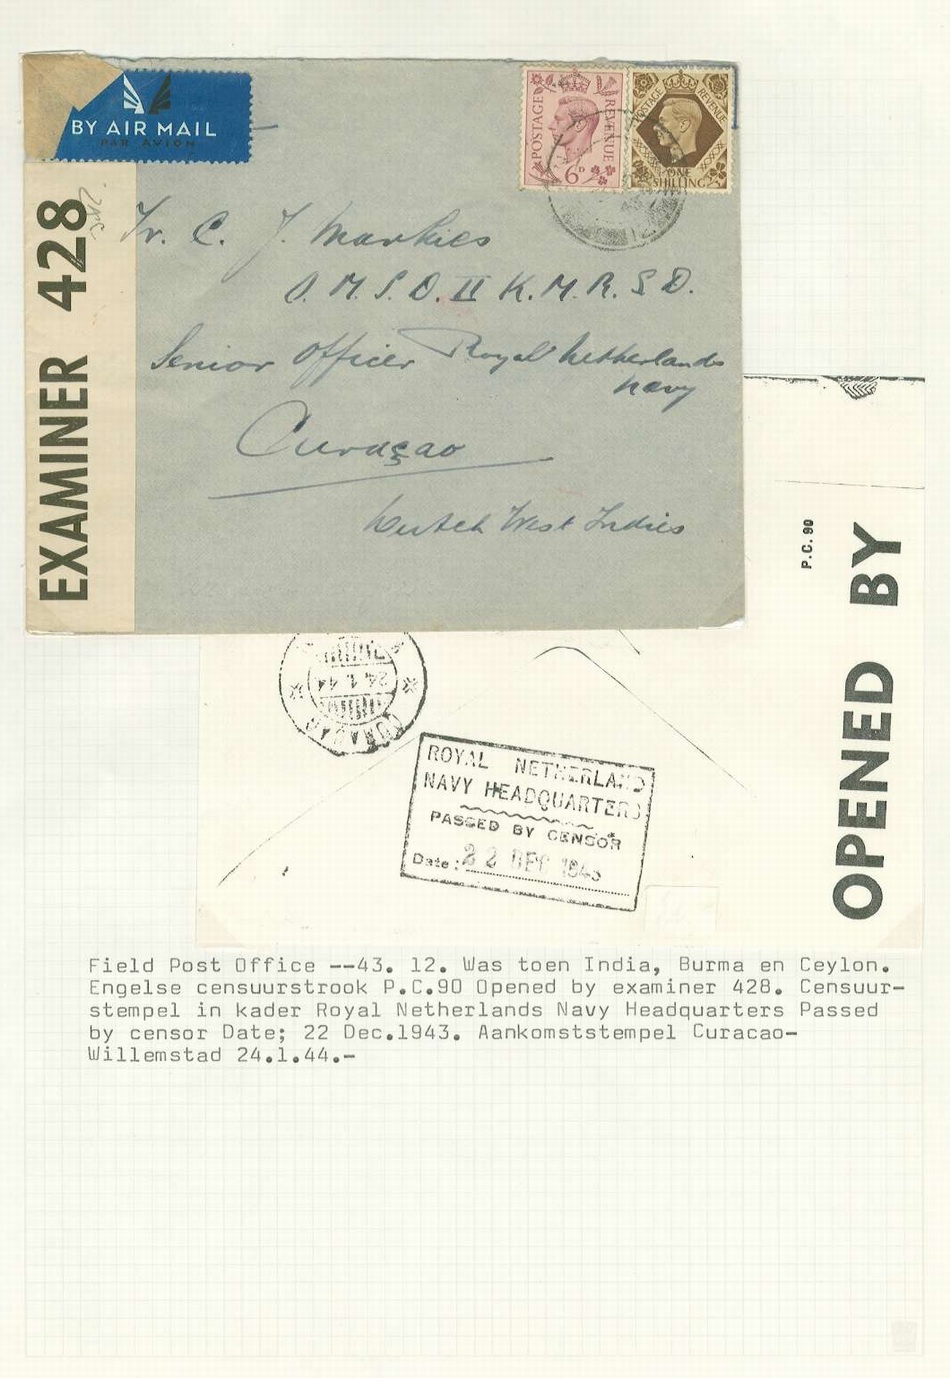 BY AIR MAIL
PAR AVION
POSTAGE REVENUE
6D
POSTAGE REVENUE
ONE
SHILLING
EXAMINER 428
C. J. Markies
O.M.S.D. II K.M.R.S.D.
Senior Officer Royal Netherlands
Navy
Curaçao
Dutch West Indies
P.C. 90
OPENED BY
24.1.44
ROYAL NETHERLAND
NAVY HEADQUARTERS
PASSED BY CENSOR
Date: 22 DEC 1943
Field Post Office --43. 12. Was toen India, Burma en Ceylon.
Engelse censuurstrook P.C.90 Opened by examiner 428. Censuur-
stempel in kader Royal Netherlands Navy Headquarters Passed
by censor Date; 22 Dec.1943. Aankomststempel Curacao-
Willemstad 24.1.44.-